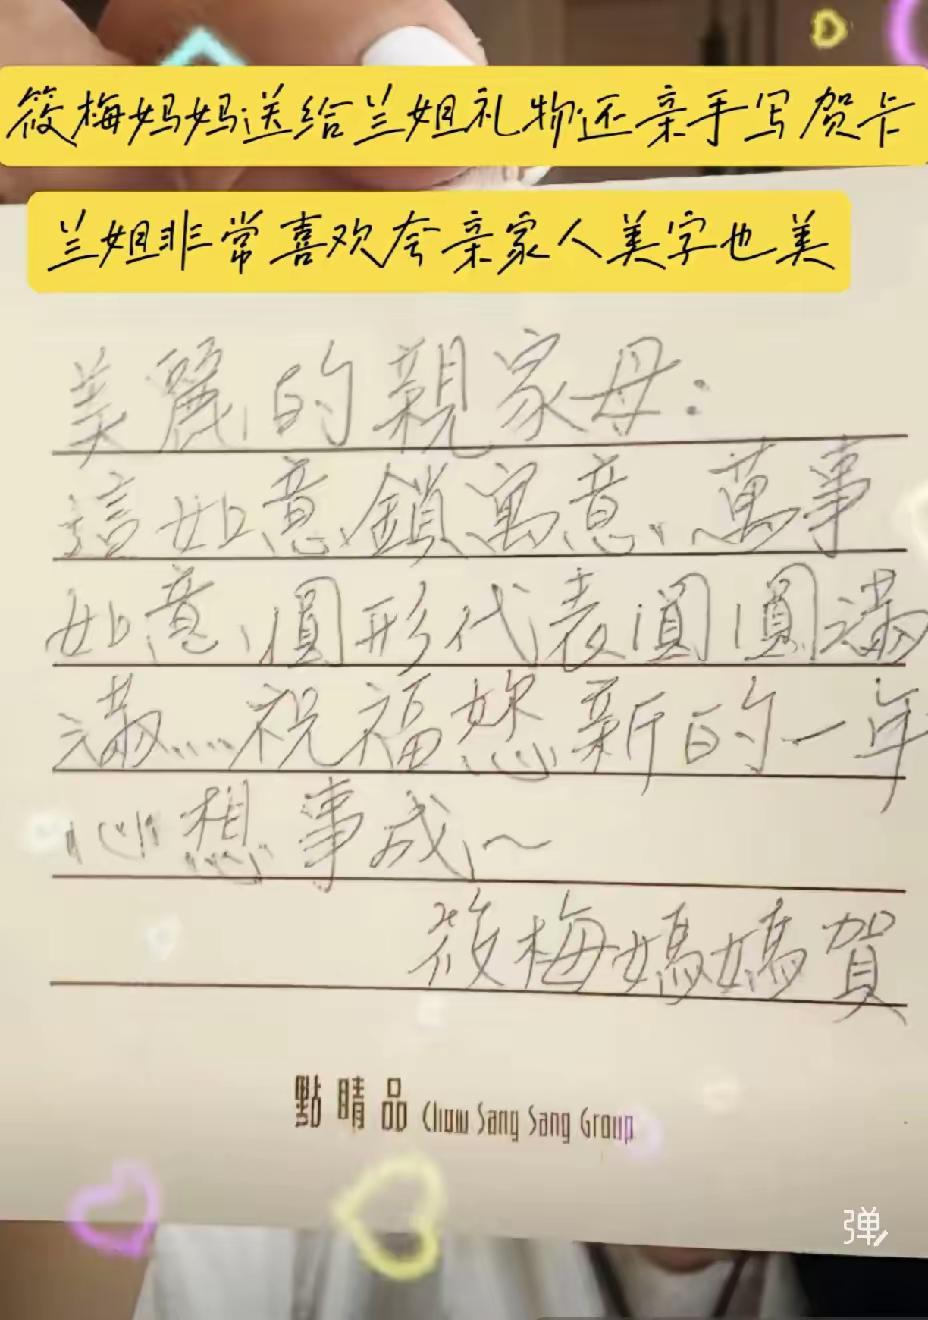 筱梅妈妈送给兰姐礼物还亲手写贺卡
兰姐非常喜欢夸亲家人美字也美
美麗的親家母:
這如意鎖寓意、萬事
如意、圓形代表圓圓滿
滿....祝福妳新的一年
心想事成~
筱梅媽媽賀
點睛品 Chow Sang Sang Group
弹